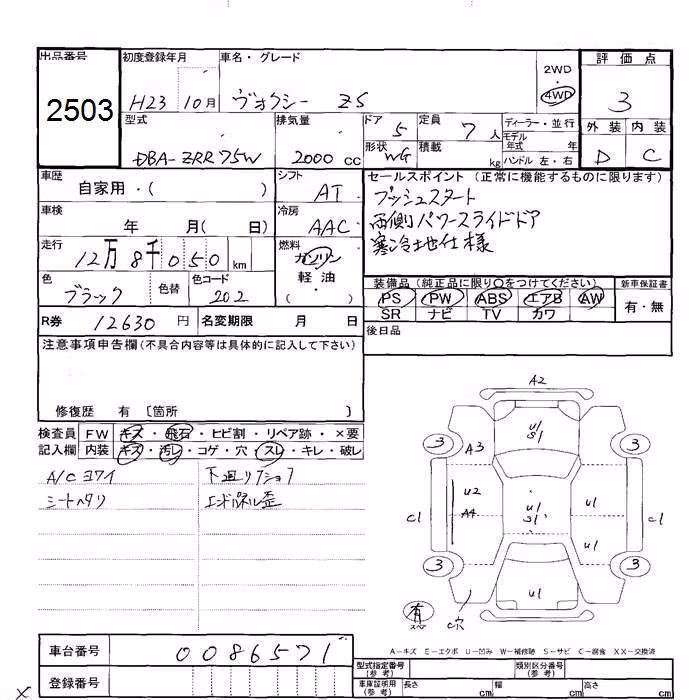 出品番号 初度登録年月 車名・グレード 2WD・4WD 評価点
2503 H23 10月 ヴォクシー ZS 3
型式 排気量 ドア 5 定員 7人 ディーラー・並行 外装 内装
モデル年式 年
DBA-ZRR75W 2000cc 形状 WG 積載 kg ハンドル 左・右 D C
車歴 シフト セールスポイント (正常に機能するものに限ります)
自家用・( ) AT プッシュスタート
車検 冷房 両側パワースライドドア
年 月( 日) AAC 寒冷地仕様
走行 燃料
12万8千050km ガソリン
色 色替 色コード 軽油 装備品 (純正品に限り○をつけてください) 新車保証書
ブラック 202 ・( ) PS PW ABS エアB AW 有・無
SR ナビ TV カワ
R券 12630円 名変期限 月 日 後日品
注意事項申告欄(不具合内容等は具体的に記入して下さい)
修復歴 有 [箇所 ]
検査員 FW キズ・飛石・ヒビ割・リペア跡・×要
記入欄 内装 キズ・汚レ・コゲ・穴・スレ・キレ・破レ
A/Cヨワイ 下廻リサビ
シートヘタリ エンドパネル歪
A2
U1
S1
3 A3 3
U2 U1
C1 A4 U1 S1 C1
U1
3 3
U1
有 C穴
A-キズ E-エクボ U-凹み W-補修跡 S-サビ C-腐食 XX-交換済
車台番号 0086571
型式指定番号(参考) 類別区分番号(参考)
登録番号 車庫証明用(参考) 長さ cm 幅 cm 高さ cm
×